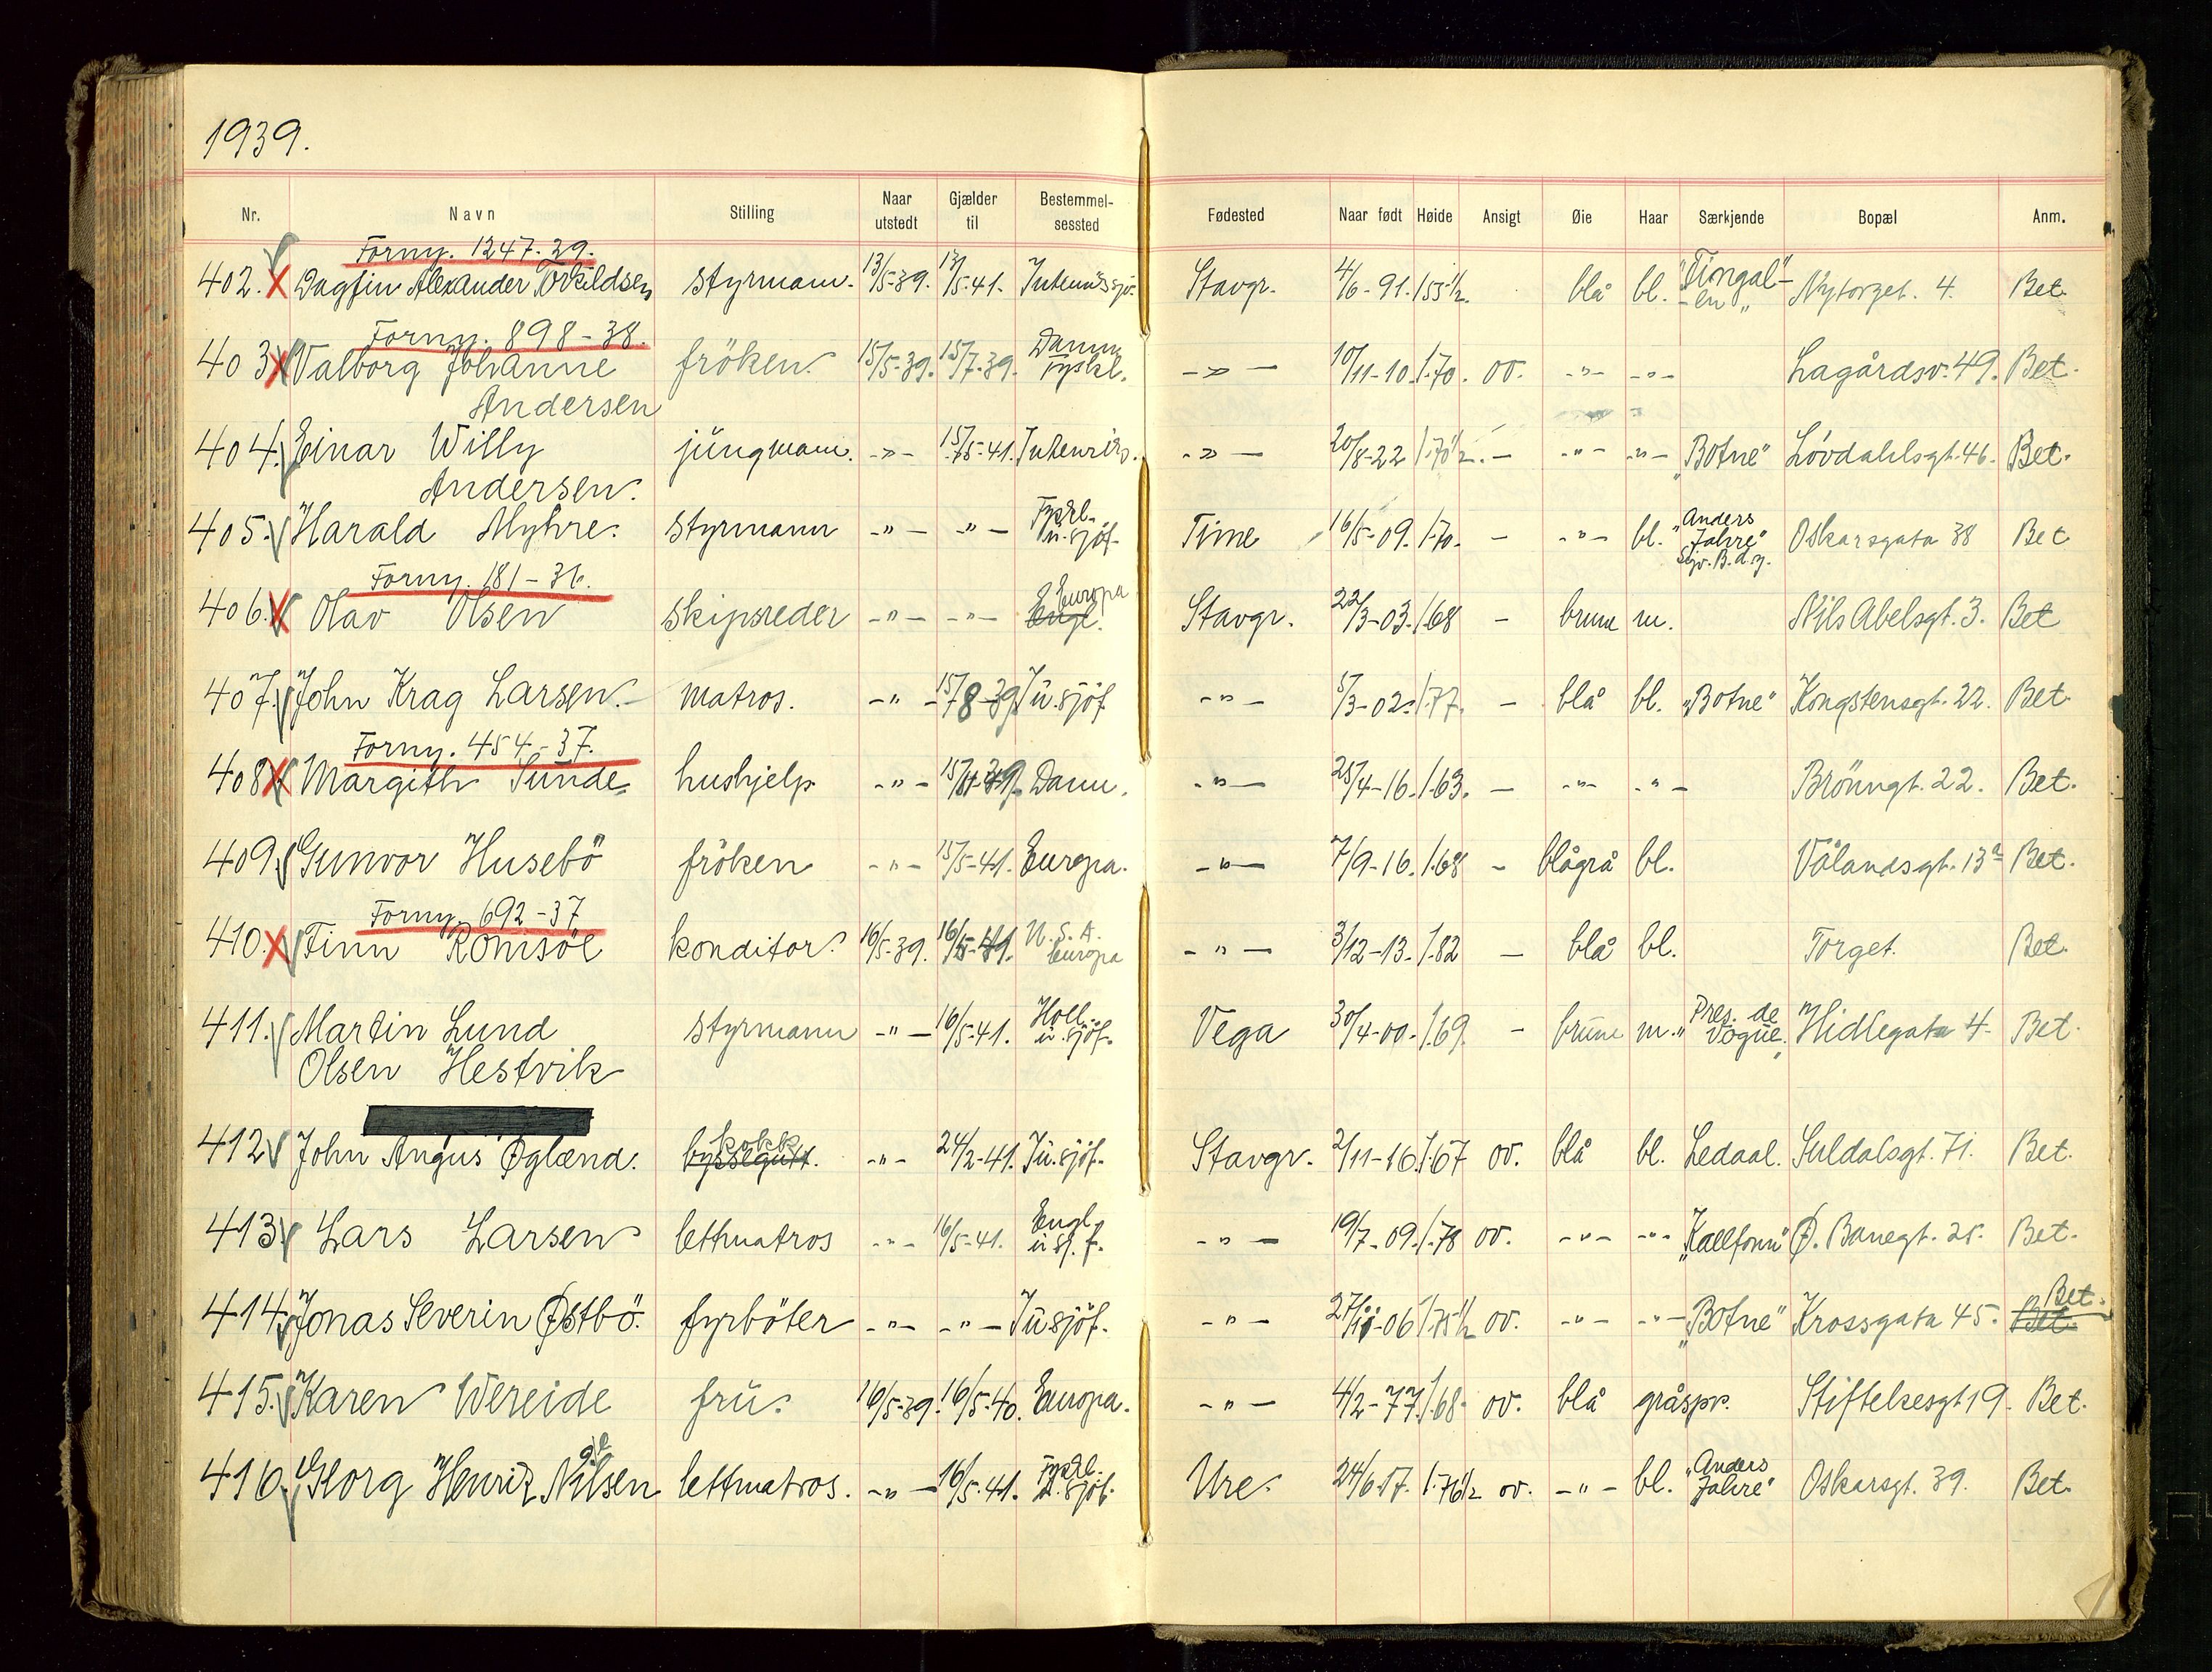 1939.
Nr. Navn Stilling Naar utstedt Gjælder til Bestemmel-sessted Fødested Naar født Høide Ansigt Øie Haar Særkjende Bopæl Anm.
Forny. 1247-29.
402. Dagfin Alexander Torkildsen styrmann. 13/5-39. 13/5-41. Stavgr. 4/6-91. 1.55½. blå bl. Nytorget. 4. Bet
Forny. 898-38.
403 Valborg Johanne fröken. 15/5-39. 15/7-39. Danm Tyskl. -"- 10/11-10. 1.70. ov. -"- -"- Lagårdsv. 49. Bet.
Andersen
404. Einar Willy jungmann. -"- 15/5-41. Utenriks. -"- 20/8-22 1.70½. - -"- -"- "Botne" Lövdahlsgt. 46. Bet.
Andersen.
405. Harald Myhre. styrmann -"- -"- Tyskl. u.sjöf. Time 16/5-09. 1.70. - -"- bl. "Anders Jahre" Oskarsgata 38 Bet
Forny. 181-36.
406. Olav Olsen skipsreder -"- -"- Europa Engl. Stavgr. 22/3-03. 1.68 - brune m. Nils Abelsgt. 3. Bet
407. John Krag Larsen. matros. -"- 15/8-39 U.sjöf -"- 5/3-02. 1.77. - blå bl. "Botne" Kongstensgt. 22. Bet.
Forny. 454-37.
408 Margith Sunde. hushjelp -"- Danm. -"- 25/4-16. 1.63. - -"- -"- Brönngt. 22. Bet.
409. Gunvor Husebö fröken -"- 15/5-41. Europa. -"- 7/9-16. 1.68 - blågrå bl. Vålandsgt. 13a Bet.
Forny. 692-37
410. Finn Römsöe konditor. 16/5-39. 16/5-41. U.S.A. Europa -"- 3/12-13. 1.82 - blå bl. Torget. Bet.
411. Martin Lund styrmann -"- 16/5-41. Holl. u.sjöf. Vega 30/4-00. 1.69. - brune m. "Pres. de Vogue" Hidlegata 4. Bet.
Olsen Hestvik
412 John Angus Øglænd. kokk byssegutt. -"- 24/2-41. U.sjöf. Stavgr. 2/11-16. 1.67 ov. blå bl. Ledaal. Suldalsgt. 71. Bet.
413 Lars Larsen lettmatros -"- 16/5-41. Engl. u.sj.f. -"- 19/7-09. 1.78 ov. -"- -"- Ø. Banegt. 25. Bet.
414. Jonas Severin Østbö. fyrböter -"- -"- U.sjöf. -"- 27/11-06 1.75½ ov. -"- -"- "Botne" Krossgata 45. Bet. Bet.
415. Karen Wereide fru. 16/5-39. 16/5-40. Europa. -"- 4/2-77. 1.68. ov. blå gråspr. Stiftelsesgt 19. Bet.
416. Georg Henrik Nilsen lettmatros. -"- 16/5-41. Tyskl. u.sjöf. Ure. 24/6-17. 1.76½ ov. -"- bl. "Anders Jahre" Oskarsgt. 39. Bet.